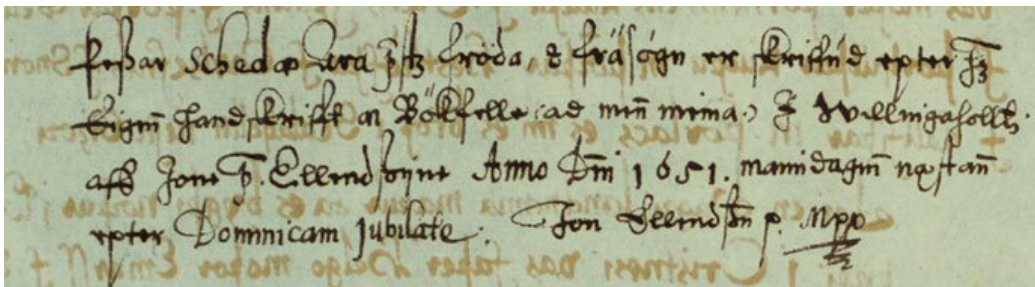 Þeßar Schedæ Ara prestz froda, & fräsógn er skriffud epter hanz
Eigin handskrifft a Bökfelle (ad minn meina) I Willingahollte.
aff Jone pr. Ellendssyne Anno Dni 1651. manudaginn næstann
epter Dominicam jubilate. Jon Ellindsson p. Mpp